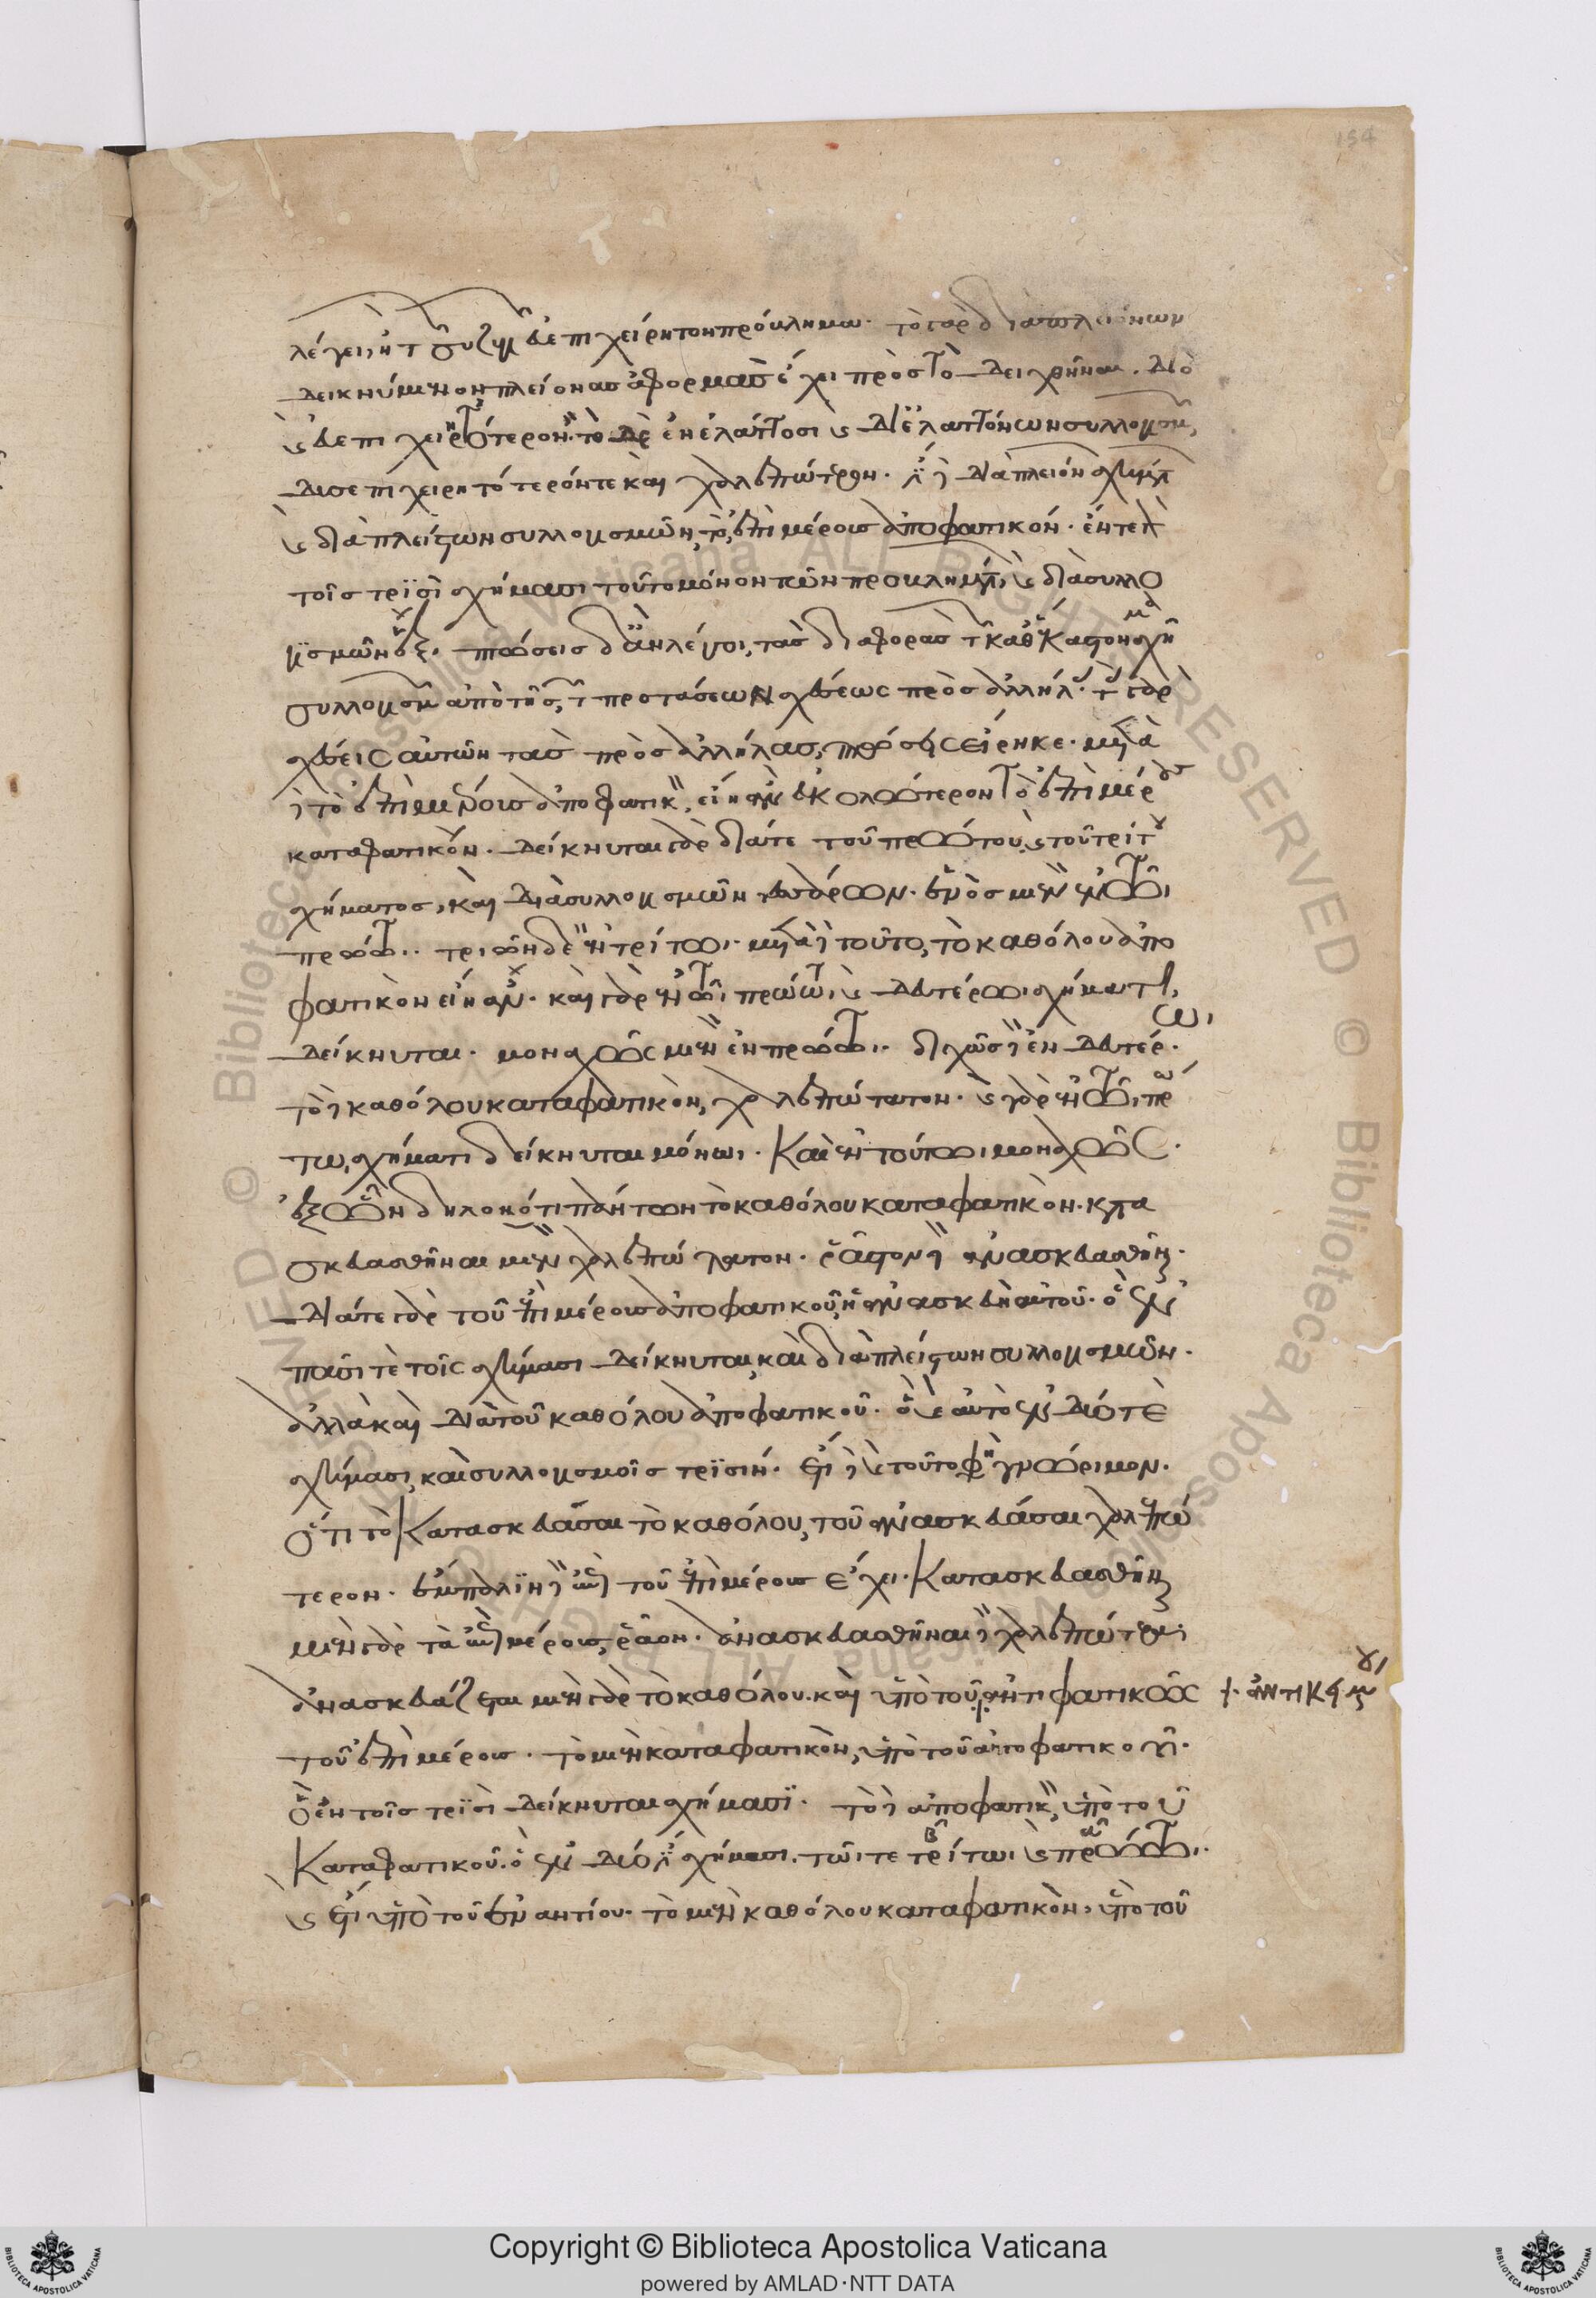 154
λέγει, ἢ τ συζυγ εὐεπιχείρητον πρόβλημα. τὸ γὰρ διὰ πλειόνων
δεικνύμενον πλείονας ἀφορμὰς ἔχει πρὸς τὸ δειχθῆναι. διὸ
καὶ εὐεπιχειρητότερον. τὸ δὲ ἐν ἐλάττοσι καὶ δι' ἐλαττόνων συλλογισμῶν,
δυσεπιχειρητότερόν τε καὶ χαλεπώτερον. διὰ πλειόνων σχημάτ
καὶ διὰ πλείστων συλλογισμῶν, τὸ ἐπὶ μέρους ἀποφατικόν. ἔν τε
τοῖς τρισὶ σχήμασι τοῦτο μόνον τῶν προβλημάτ, καὶ διὰ συλλο
γισμῶν ἕξ. πτώσεις δ' ἂν λέγοι, τὰς διαφορὰς τ καθ' ἕκαστον σχῆμα
συλλογισμῶν ἀπὸ τῆς τ προτάσεων σχέσεως πρὸς ἀλλήλ. τ γὰρ
σχέσεις αὐτῶν τὰς πρὸς ἀλλήλας, πτώσεις εἴρηκε. μετὰ
δὲ τὸ ἐπὶ μέρους ἀποφατικ, εἶναι εὐκολώτερον τὸ ἐπὶ μέρους
καταφατικόν. δείκνυται γὰρ διά τε τοῦ πρώτου, καὶ τοῦ τρίτου
σχήματος, καὶ διὰ συλλογισμῶν τεσσάρων. ἑνὸς μὲν ἐν τῶι
πρώτωι. τριῶν δὲ ἐν τρίτωι. μετὰ δὲ τοῦτο, τὸ καθόλου ἀπο
φατικὸν εἶναι. καὶ γὰρ ἐν τῶι πρώτωι, καὶ δευτέρωι σχήματι,
δείκνυται. μοναχῶς μὲν ἐν πρώτωι. διχῶς δὲ ἐν δευτέρωι.
τὸ δὲ καθόλου καταφατικὸν, χαλεπώτατον. καὶ γὰρ ἐν τῶι πρώ
τωι σχήματι δείκνυται μόνωι. καὶ ἐν τούτωι μοναχῶς.
ἐξ ὧν δῆλον ὅτι πάντων τὸ καθόλου καταφατικὸν. κατα
σκευασθῆναι μὲν χαλεπώτατον. ῥᾷστον δὲ ἀνασκευασθῆναι.
διά τε γὰρ τοῦ ἐπὶ μέρους ἀποφατικοῦ, ἡ ἀνασκευὴ αὐτοῦ. ὃ ἐν
πᾶσί τε τοῖς σχήμασι δείκνυται, καὶ διὰ πλείστων συλλογισμῶν.
ἀλλὰ καὶ διὰ τοῦ καθόλου ἀποφατικοῦ. ὃ καὶ αὐτὸ ἐν δυσί τε
σχήμασι, καὶ συλλογισμοῖς τρισίν. ἔτι δὲ καὶ τοῦτό φη γνώριμον.
ὅτι τὸ κατασκευάσαι τὸ καθόλου, τοῦ ἀνασκευάσαι χαλεπώ
τερον. ἔμπαλιν δὲ ἐπὶ τοῦ ἐπὶ μέρους ἔχει. κατασκευασθῆναι
μὲν γὰρ τὰ ἐπὶ μέρους, ῥᾷον. ἀνασκευασθῆναι δὲ χαλεπώτερα
ἀνασκευάζεται μὲν γὰρ τὸ καθόλου. καὶ ὑπὸ τοῦ ἀντιφατικῶς
ἀντικειμένου
τοῦ ἐπὶ μέρους. τὸ μὲν καταφατικὸν, ὑπὸ τοῦ ἀποφατικοῦ.
ὃ ἐν τοῖς τρισὶ δείκνυται σχήμασι. τὸ δὲ ἀποφατικ, ὑπὸ τοῦ
καταφατικοῦ. ὃ ἐν δυσὶ σχήμασι. τῶι τε τρίτωι καὶ πρώτωι.
καὶ ἔτι ὑπὸ τοῦ ἐναντίου. τὸ μὲν καθόλου καταφατικὸν, ὑπὸ τοῦ
Copyright © Biblioteca Apostolica Vaticana
powered by AMLAD·NTT DATA